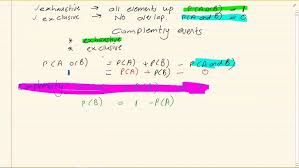 exhaustive → all element up P(A or B) = 1
exclusive → No overlap. P(A and B) = 0
Complemty events
* exhaustive
* exclusive
P(A or B) = P(A) + P(B) - P(A and B)
1 = P(A) + P(B) - 0
P(B) = 1 - P(A)